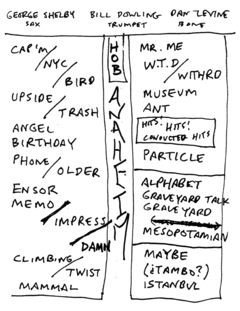 GEORGE SHELBY BILL DOWLING DAN LEVINE
SAX TRUMPET BONE
CAP'M/
NYC/
BIRD
UPSIDE/
TRASH
ANGEL
BIRTHDAY
PHONE/
OLDER
ENSOR
MEMO
IMPRESS
DAMN
CLIMBING/
TWIST
MAMMAL
HOB
ANAHEIM
MR. ME
W.T.D/
WITHRD
MUSEUM
ANT
HITS! HITS!
CONDUCTED HITS
PARTICLE
ALPHABET
GRAVEYARD TALK
GRAVEYARD
MESOPOTAMIAN
MAYBE
(¿TAMBO?)
ISTANBUL